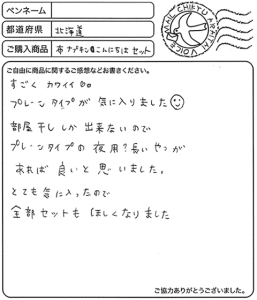 ペンネーム
都道府県 北海道
ご購入商品 布ナプキン こんにちは セット
MAIL CHIEYU ARAITAI VOICE
ご自由に商品に関するご感想などお書きください。
すごく カワイイ
プレーンタイプが 気に入りました
部屋干ししか 出来ないので
プレーンタイプの 夜用?長いやつが
あれば 良いと 思いました。
とても 気に入ったので
全部セットも ほしくなりました
ご協力ありがとうございました。